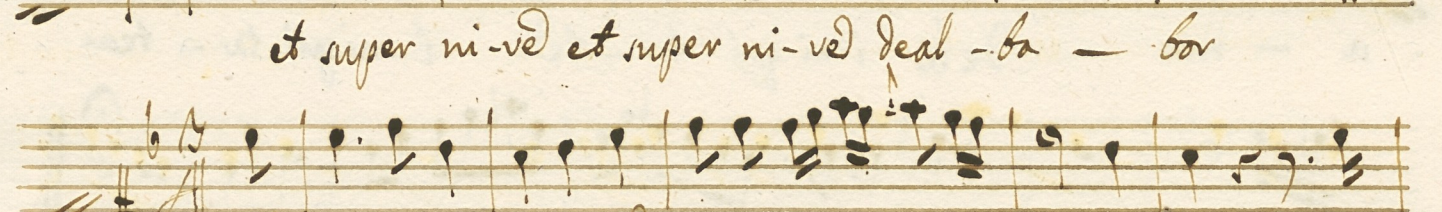 et super ni-ve et super ni-ve deal-ba — bor